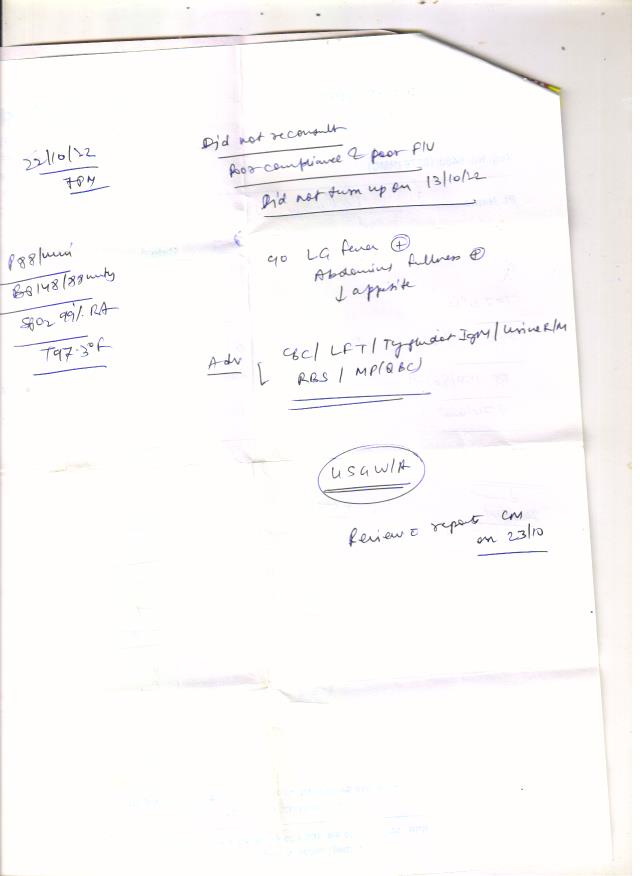 22/10/22
7PM
Did not reconsult
Poor compliance & poor F/U
Did not turn up on 13/10/22
P 88/min
BP 148/88 mmHg
SpO2 99% RA
T 97.3°F
c/o LG fever (+)
Abdominis fullness (+)
↓ appitite
Adv
CBC / LFT / Typhidot IgM / Urine R/M
RBS / MP (QBC)
USG W/A
Review c̄ reports
on 23/10